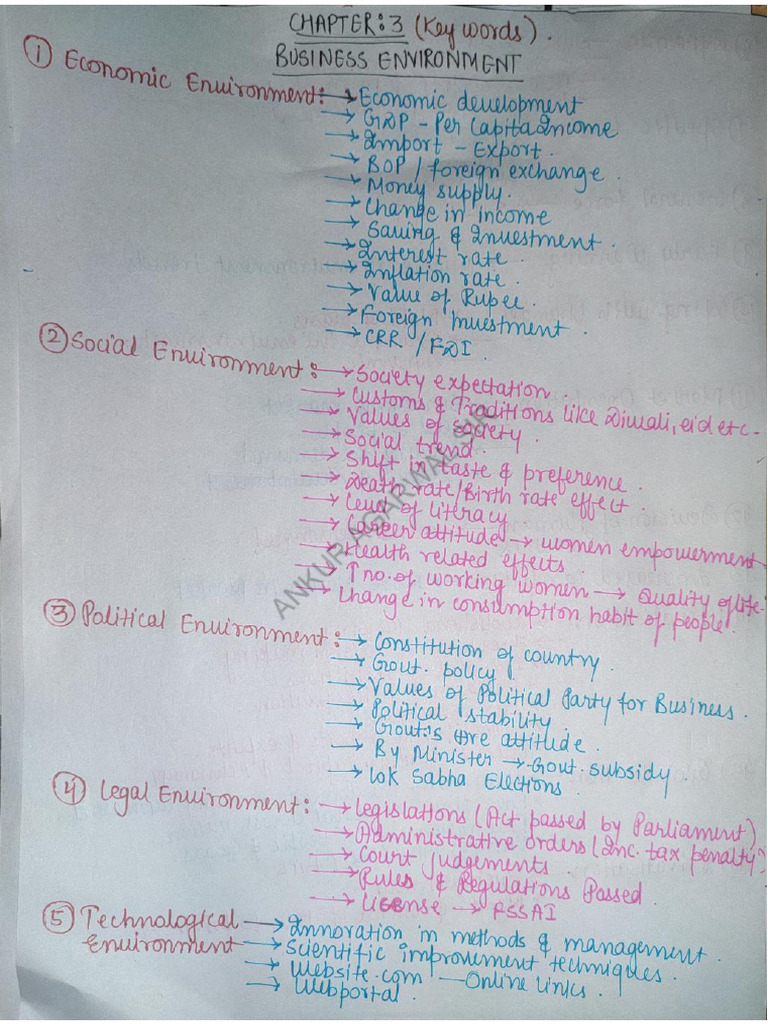 CHAPTER:3 (Key words).
BUSINESS ENVIRONMENT
① Economic Environment: → Economic development
→ GDP - Per Capita Income
→ Import - Export.
→ BOP / foreign exchange.
→ Money supply.
→ Change in income
→ Saving & Investment.
→ Interest rate.
→ Inflation rate.
→ Value of Rupee.
→ Foreign Investment.
→ CRR / FDI.
② Social Environment: → Society expectation
→ Customs & Traditions like Diwali, eid etc-
→ Values of society.
→ Social trend.
→ Shift in taste & preference.
→ Death rate/Birth rate effect.
→ Level of literacy
→ Career attitude → women empowerment
→ Health related effects.
→ ↑ no. of working women → Quality of life-
→ Change in consumption habit of people.
③ Political Environment: → Constitution of country.
→ Govt. policy.
→ Values of Political Party for Business.
→ Political stability
→ Govt.'s +ve attitude.
→ By Minister → Govt. subsidy.
→ Lok Sabha Elections.
④ Legal Environment: → Legislations (Act passed by Parliament)
→ Administrative orders (Inc. tax penalty)
→ Court judgements.
→ Rules & Regulations Passed.
→ License → FSSAI
⑤ Technological → Innovation in methods & management.
Environment → Scientific improvement techniques.
→ Website.com — Online links.
→ Webportal.
ANKUR AGARWAL SIR